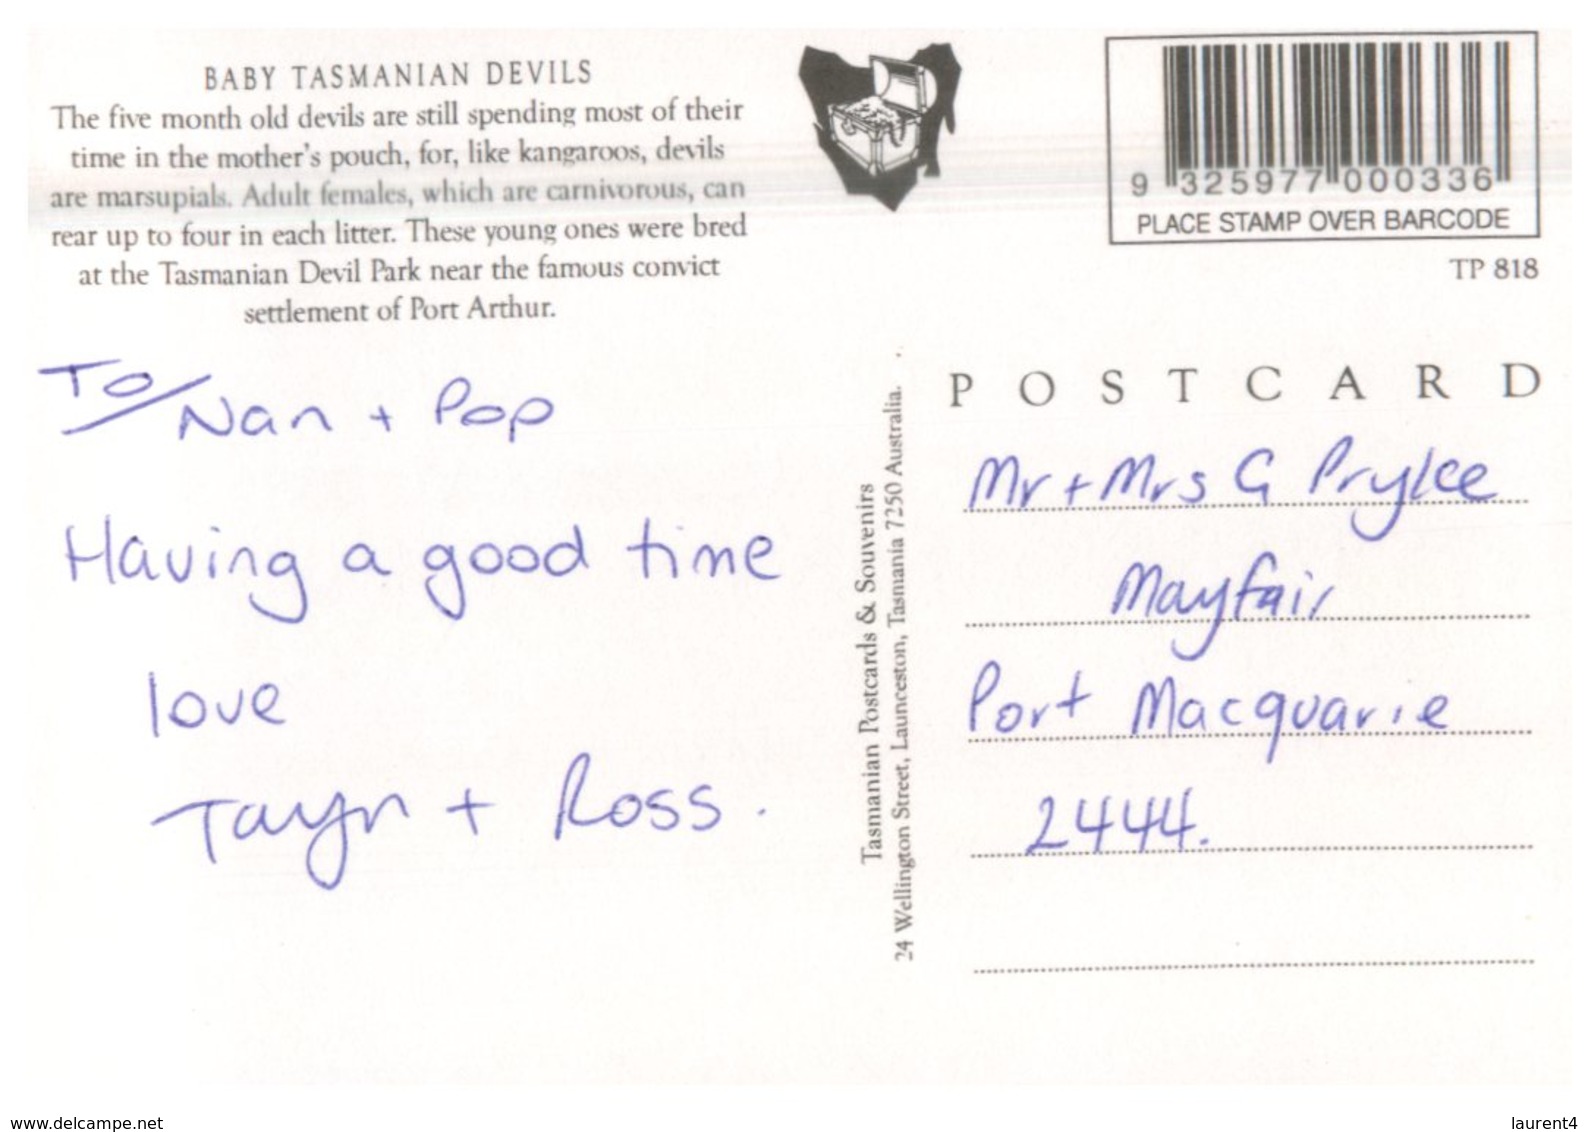 BABY TASMANIAN DEVILS
The five month old devils are still spending most of their
time in the mother's pouch, for, like kangaroos, devils
are marsupials. Adult females, which are carnivorous, can
rear up to four in each litter. These young ones were bred
at the Tasmanian Devil Park near the famous convict
settlement of Port Arthur.
9 325977 000336
PLACE STAMP OVER BARCODE
TP 818
TO/ Nan + Pop
Having a good time
love
Tayn + Ross.
Tasmanian Postcards & Souvenirs
24 Wellington Street, Launceston, Tasmania 7250 Australia.
POSTCARD
Mr + Mrs G Prylce
Mayfair
Port Macquarie
2444.
www.delcampe.net
laurent4